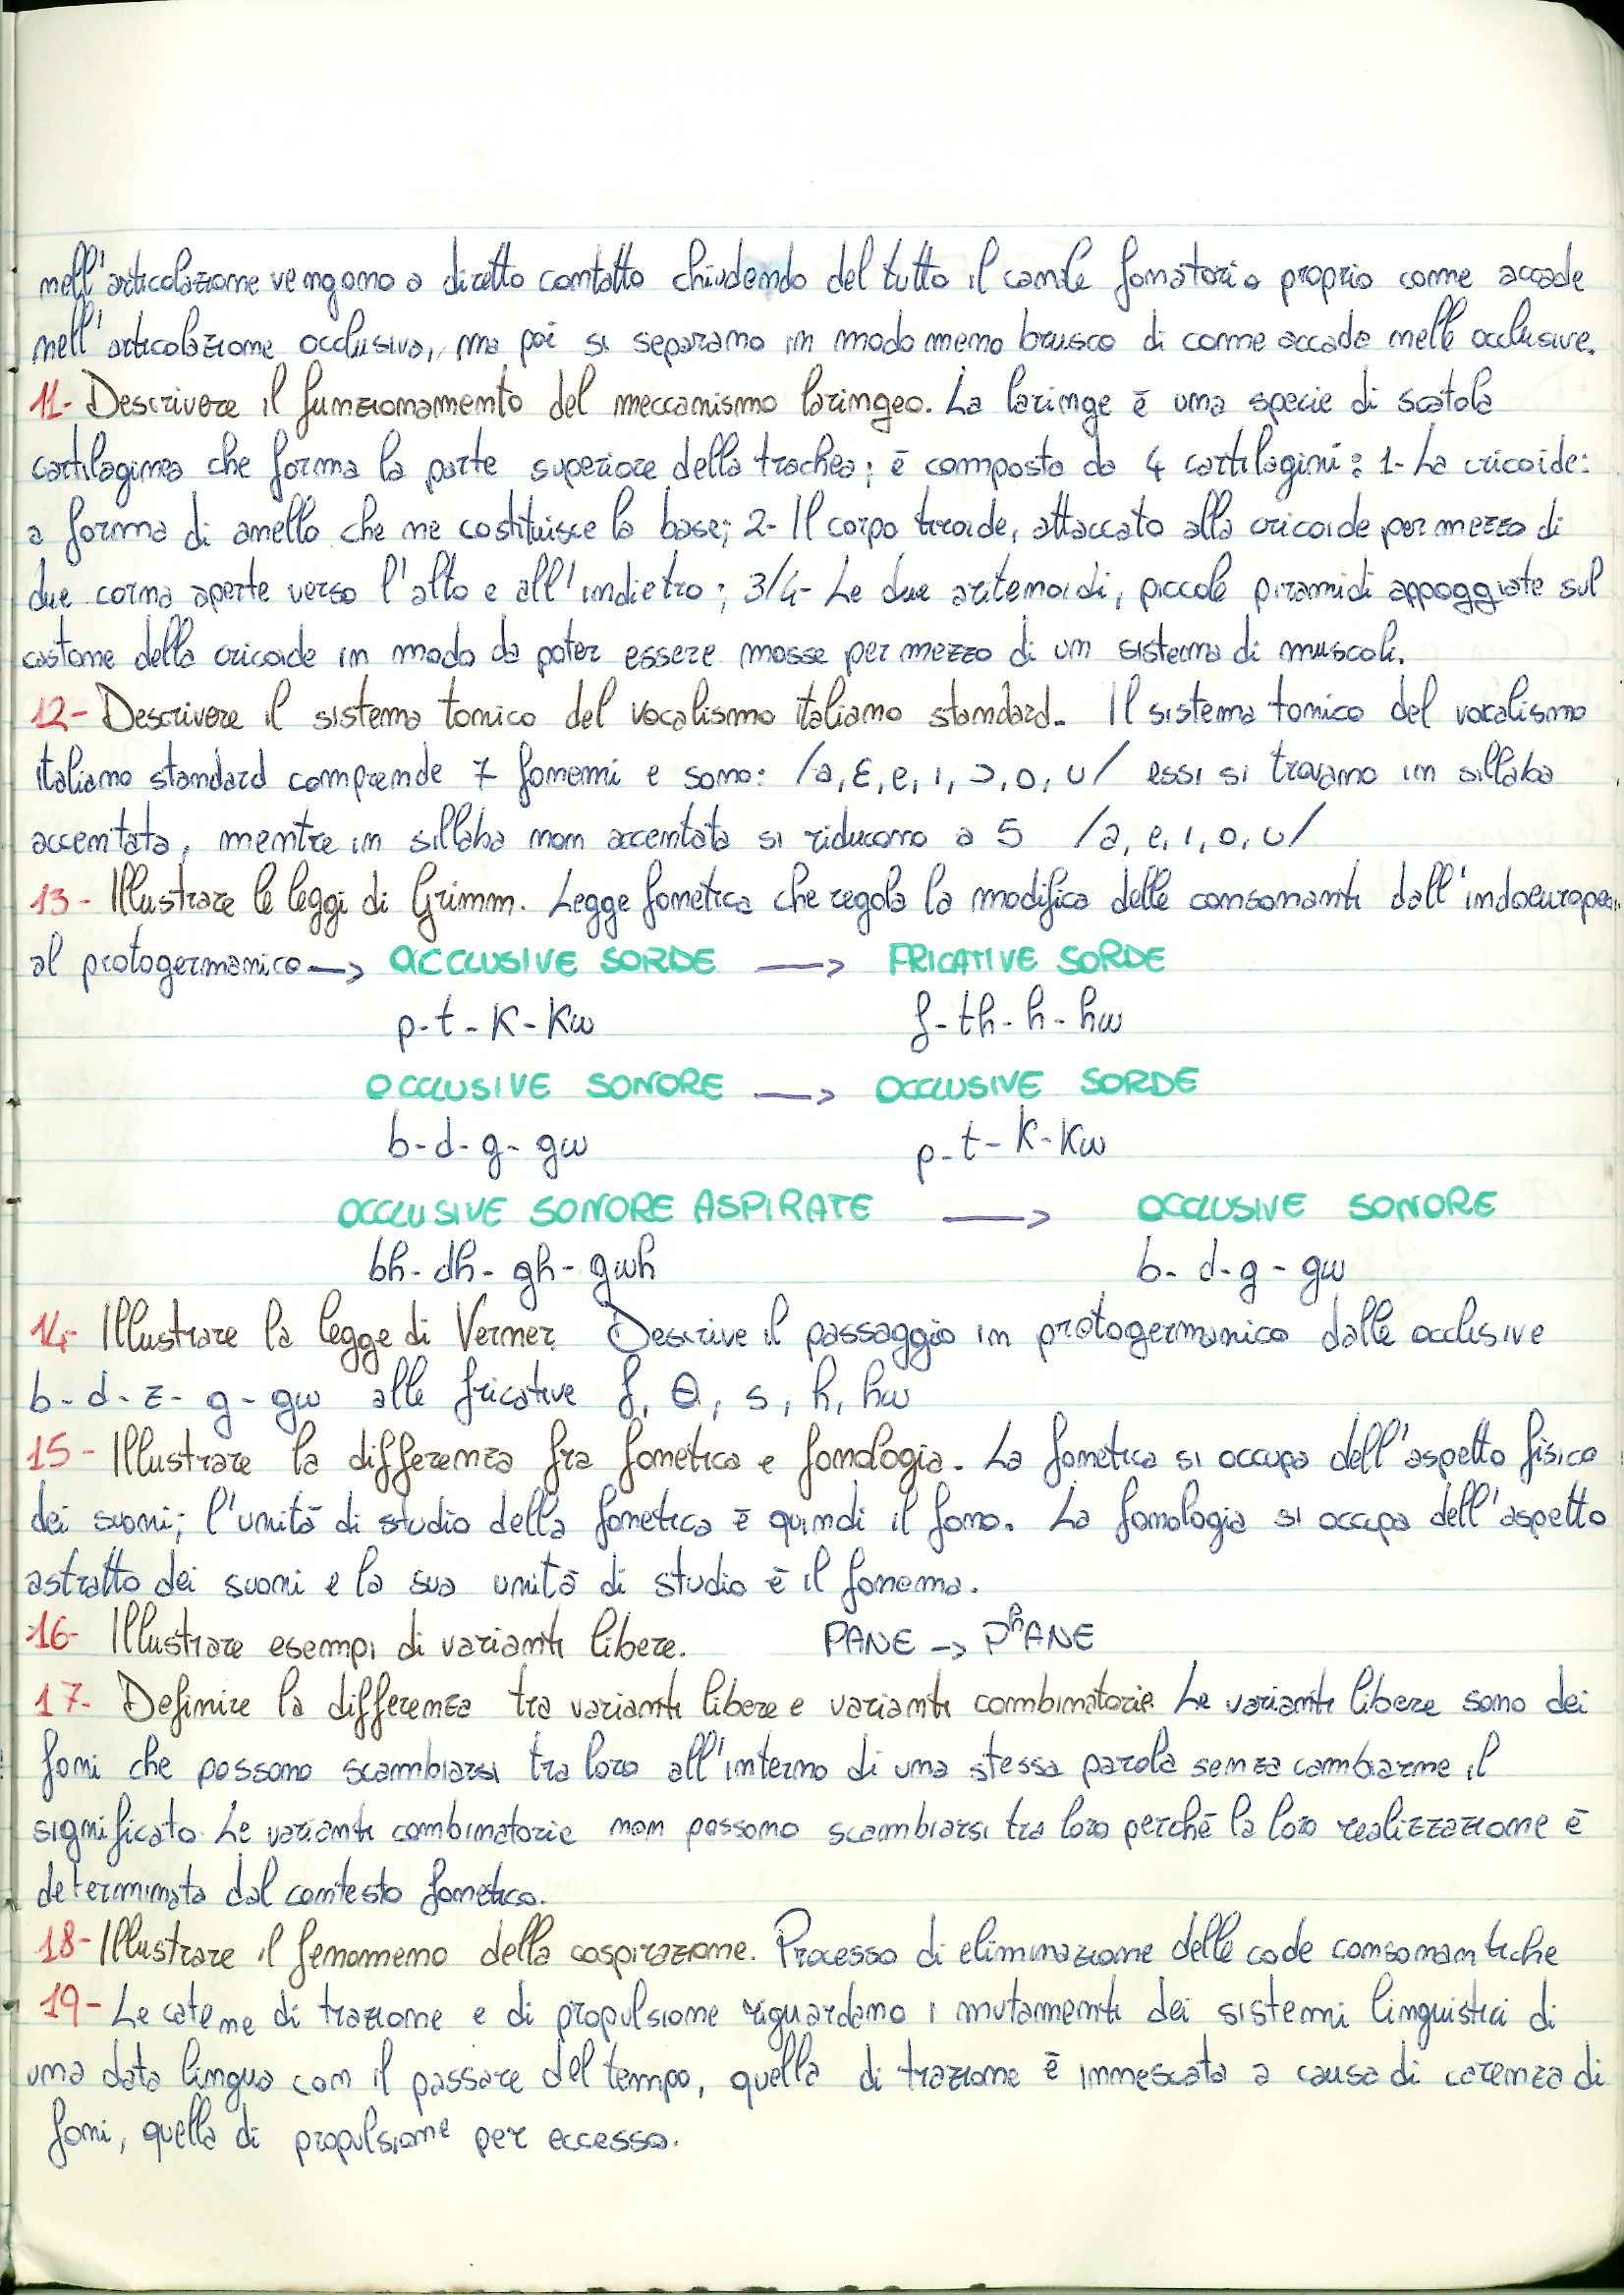 nell'articolazione vengono a diretto contatto chiudendo del tutto il canale fonatorio proprio come accade
nell'articolazione occlusiva, ma poi si separano in modo meno brusco di come accade nelle occlusive.
11- Descrivere il funzionamento del meccanismo laringeo. La laringe è una specie di scatola
cartilaginea che forma la parte superiore della trachea; è composta da 4 cartilagini: 1- La cricoide:
a forma di anello che ne costituisce la base; 2- Il corpo tiroide, attaccato alla cricoide per mezzo di
due corna aperte verso l'alto e all'indietro; 3/4- Le due aritenoidi, piccole piramidi appoggiate sul
castone della cricoide in modo da poter essere mosse per mezzo di un sistema di muscoli.
12- Descrivere il sistema tonico del vocalismo italiano standard. Il sistema tonico del vocalismo
italiano standard comprende 7 fonemi e sono: /a, ɛ, e, i, ɔ, o, u/ essi si trovano in sillaba
accentata, mentre in sillaba non accentata si riducono a 5 /a, e, i, o, u/
13- Illustrare le leggi di Grimm. Legge fonetica che regola la modifica delle consonanti dall'indoeuropeo
al protogermanico → OCCLUSIVE SORDE → FRICATIVE SORDE
p-t-k-kw f-th-h-hw
OCCLUSIVE SONORE → OCCLUSIVE SORDE
b-d-g-gw p-t-k-kw
OCCLUSIVE SONORE ASPIRATE → OCCLUSIVE SONORE
bh-dh-gh-gwh b-d-g-gw
14- Illustrare la legge di Verner. Descrive il passaggio in protogermanico dalle occlusive
b-d-z-g-gw alle fricative f, θ, s, h, hw
15- Illustrare la differenza fra fonetica e fonologia. La fonetica si occupa dell'aspetto fisico
dei suoni; l'unità di studio della fonetica è quindi il fono. La fonologia si occupa dell'aspetto
astratto dei suoni e la sua unità di studio è il fonema.
16- Illustrare esempi di varianti libere. PANE → PʰANE
17- Definire la differenza tra varianti libere e varianti combinatorie. Le varianti libere sono dei
foni che possono scambiarsi tra loro all'interno di una stessa parola senza cambiarne il
significato. Le varianti combinatorie non possono scambiarsi tra loro perché la loro realizzazione è
determinata dal contesto fonetico.
18- Illustrare il fenomeno della cospirazione. Processo di eliminazione delle code consonantiche
19- Le catene di trazione e di propulsione riguardano i mutamenti dei sistemi linguistici di
una data lingua con il passare del tempo, quella di trazione è innescata a causa di carenza di
foni, quella di propulsione per eccesso.